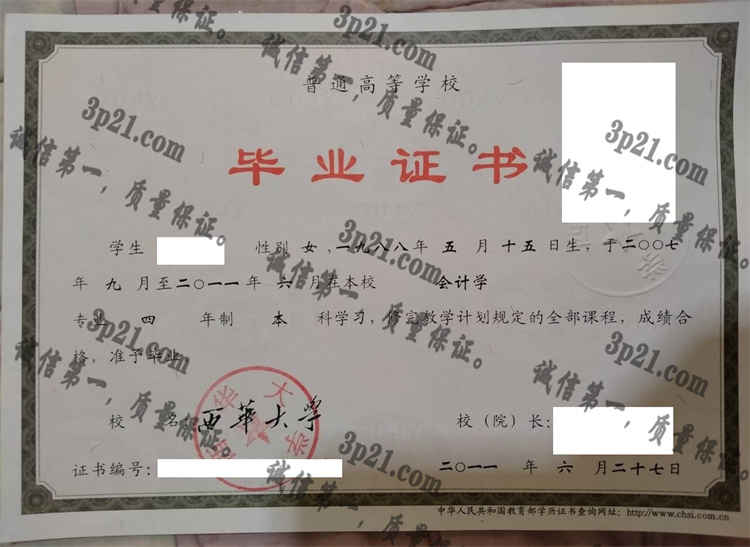 普通高等学校
毕业证书
学生 性别 女 ,一九八八年 五 月 十五 日生, 于二〇〇七
年 九 月至二〇一一年 六 月在本校 会计学
专业 四 年制 本 科学习, 修完教学计划规定的全部课程, 成绩合
格, 准予毕业。
校 名: 西华大学 校(院)长:
证书编号: 二〇一一 年 六 月二十七日
中华人民共和国教育部学历证书查询网址: http://www.chsi.com.cn
西华大学
3p21.com
诚信第一,质量保证。
3p21.com
诚信第一,质量保证。
3p21.com
诚信第一,质量保证。
3p21.com
诚信第一,质量保证。
3p21.com
诚信第一,质量保证。
3p21.com
诚信第一,质量保证。
3p21.com
诚信第一,质量保证。
3p21.com
诚信第一,质量保证。